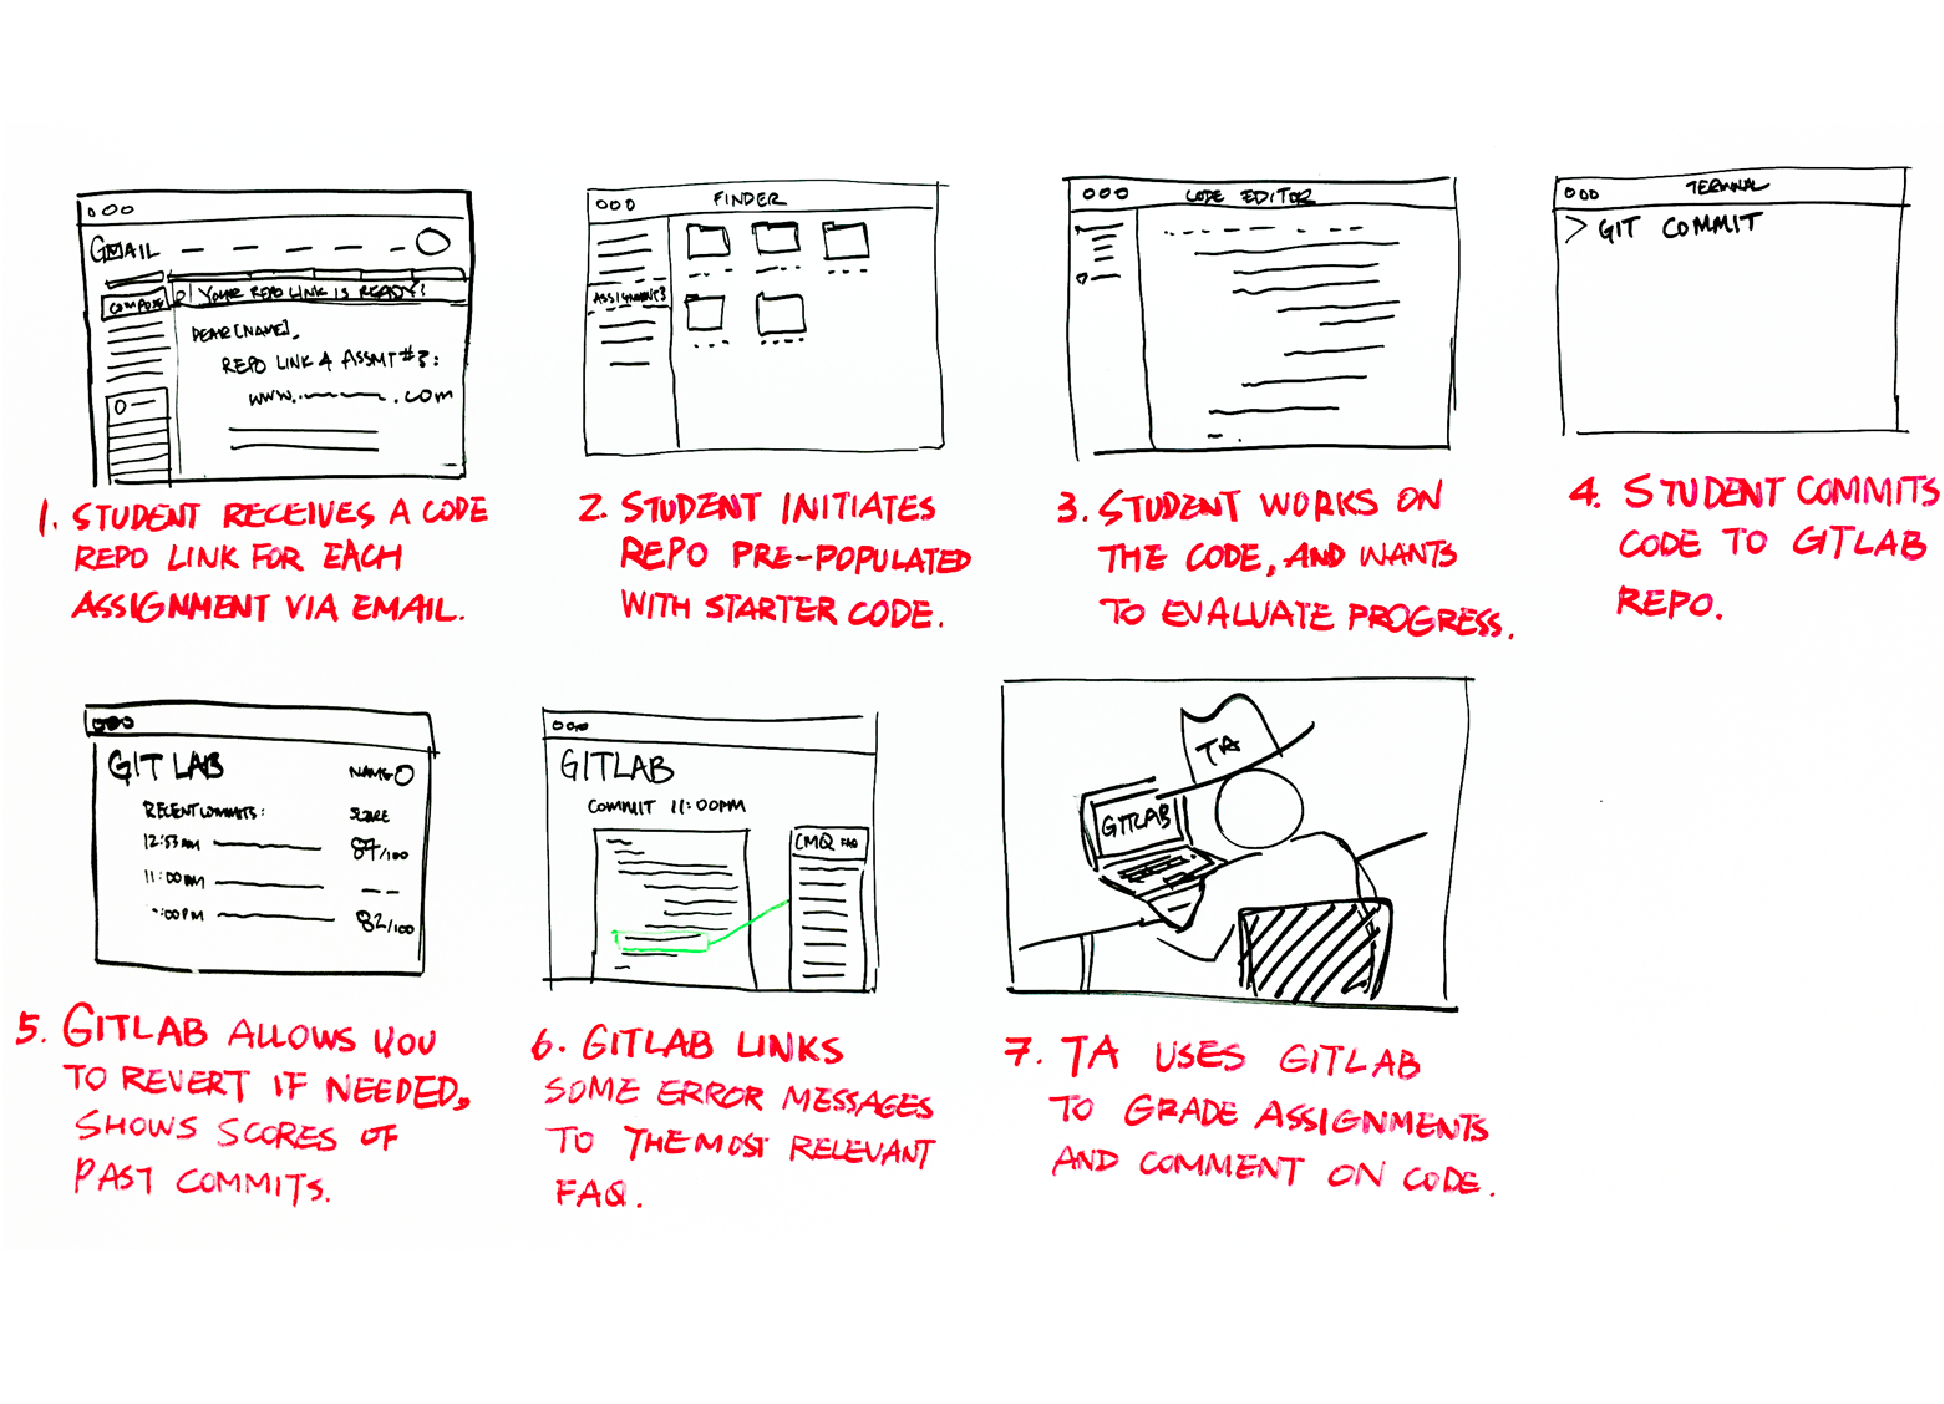 GMAIL
COMPOSE
YOUR REPO LINK IS READY!
DEAR [NAME],
REPO LINK 4 ASSMT #3:
WWW. .COM
1. STUDENT RECEIVES A CODE
REPO LINK FOR EACH
ASSIGNMENT VIA EMAIL.
FINDER
ASSIGNMENTS
2. STUDENT INITIATES
REPO PRE-POPULATED
WITH STARTER CODE.
CODE EDITOR
3. STUDENT WORKS ON
THE CODE, AND WANTS
TO EVALUATE PROGRESS.
TERMINAL
> GIT COMMIT
4. STUDENT COMMITS
CODE TO GITLAB
REPO.
GIT LAB
NAME
RECENT COMMITS:
SCORE
12:53 AM
87/100
11:00 PM
:00 PM
82/100
5. GITLAB ALLOWS YOU
TO REVERT IF NEEDED,
SHOWS SCORES OF
PAST COMMITS.
GITLAB
COMMIT 11:00PM
FAQ
6. GITLAB LINKS
SOME ERROR MESSAGES
TO THE MOST RELEVANT
FAQ.
TA
GITLAB
7. TA USES GITLAB
TO GRADE ASSIGNMENTS
AND COMMENT ON CODE.